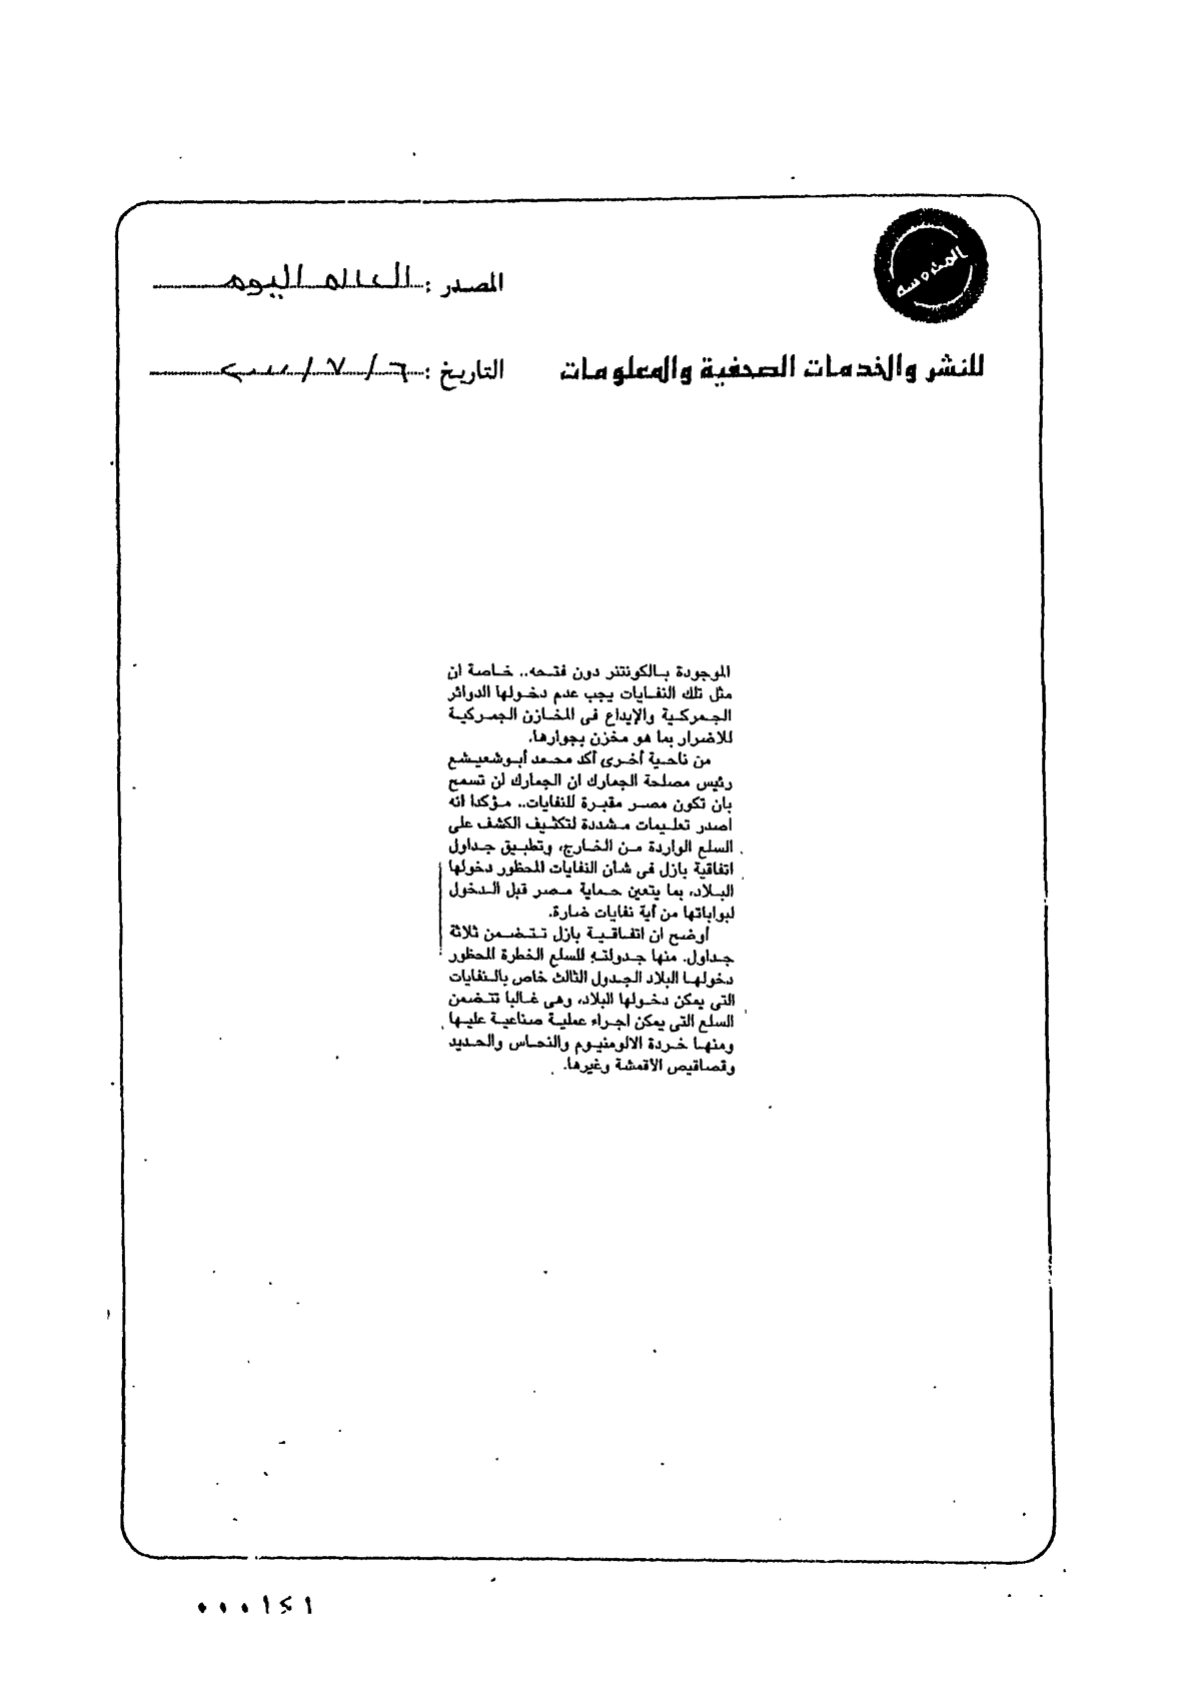 المحروسة
المصدر : العالم اليوم
للنشر والخدمات الصحفية والمعلومات
التاريخ : ٦ / ٧ / ٢٠٠٠
الموجودة بالكونتنر دون فتحه.. خاصة ان
مثل تلك النفايات يجب عدم دخولها الدوائر
الجمركية والإيداع فى المخازن الجمركية
للاضرار بما هو مخزن بجوارها.
من ناحية أخرى أكد محمد أبو شعيشع
رئيس مصلحة الجمارك ان الجمارك لن تسمح
بان تكون مصر مقبرة للنفايات.. مؤكدا انه
اصدر تعليمات مشددة لتكثيف الكشف على
السلع الواردة من الخارج، وتطبيق جداول
اتفاقية بازل فى شأن النفايات المحظور دخولها
البلاد، بما يتعين حماية مصر قبل الدخول
لبواباتها من أية نفايات ضارة.
أوضح ان اتفاقية بازل تتضمن ثلاثة
جداول. منها جدولته للسلع الخطرة المحظور
دخولها البلاد الجدول الثالث خاص بالنفايات
التى يمكن دخولها البلاد، وهى غالبا تتضمن
السلع التى يمكن اجراء عملية صناعية عليها
ومنها خردة الالومنيوم والنحاس والحديد
وقصاقيص الأقمشة وغيرها.
٠٠٠١٤١